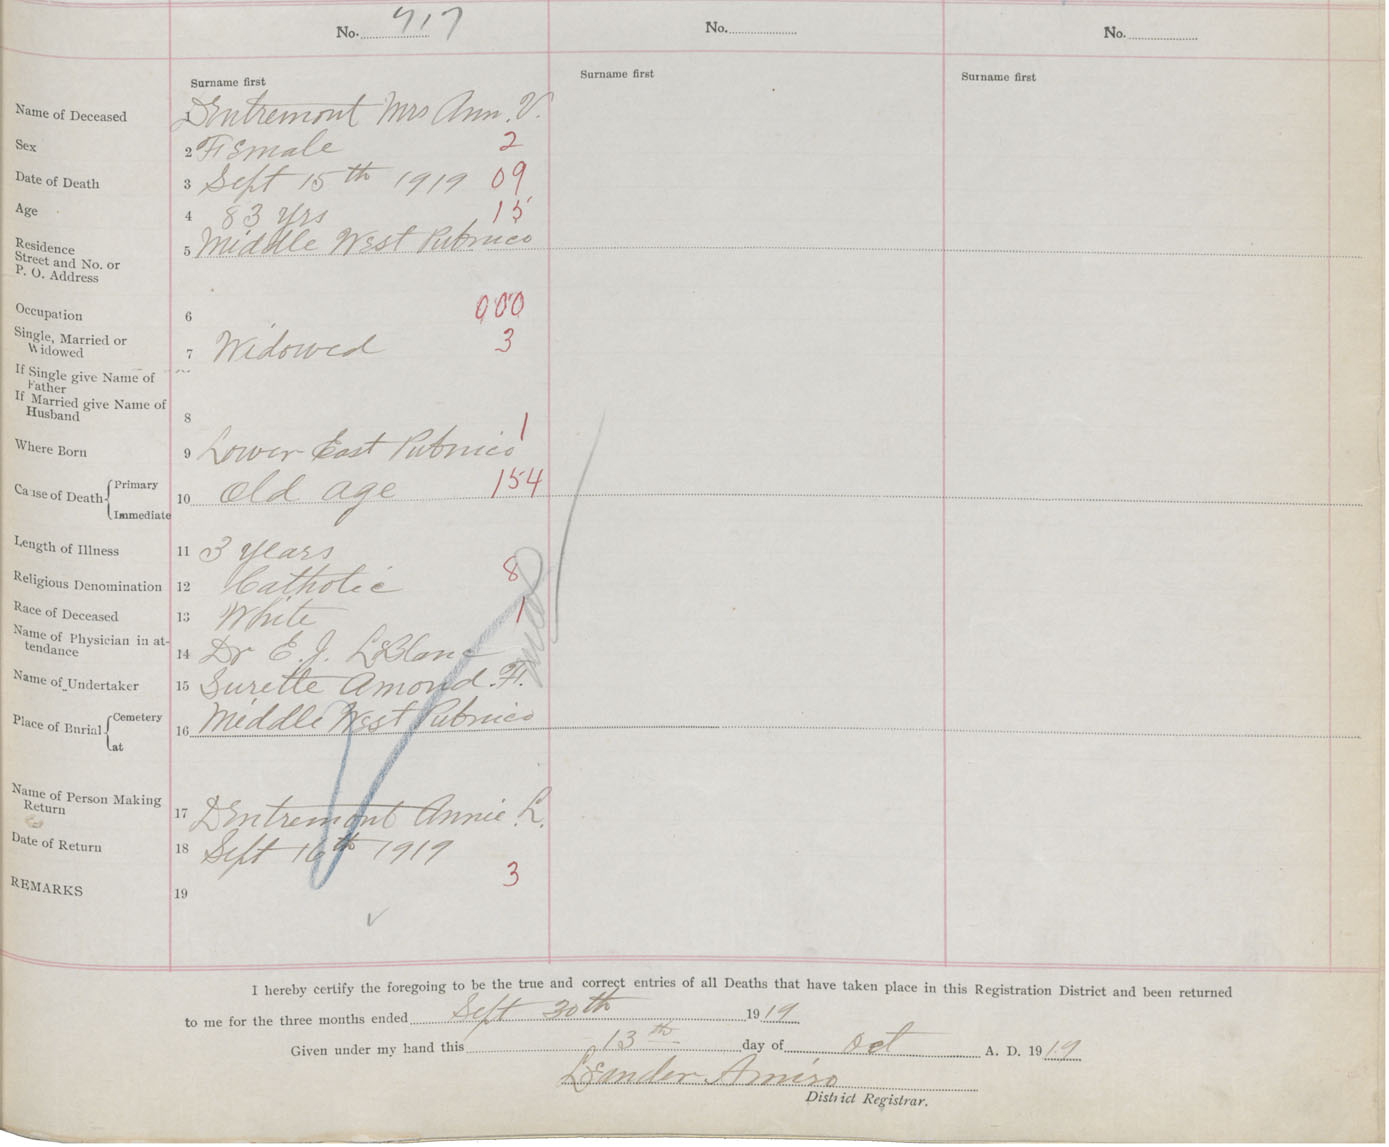 No. 717 No. No.
Surname first Surname first Surname first
Name of Deceased 1 DEntremont Mrs Ann. V.
Sex 2 Female 2
Date of Death 3 Sept 15th 1919 09
Age 4 83 yrs 15
Residence
Street and No. or
P. O. Address 5 Middle West Pubnico
Occupation 6 000
Single, Married or
Widowed 7 Widowed 3
If Single give Name of
Father
If Married give Name of
Husband 8
1
Where Born 9 Lower East Pubnico
Cause of Death { Primary
Immediate 10 Old age 154
Length of Illness 11 3 years
Religious Denomination 12 Catholic 8
Race of Deceased 13 White 1
Name of Physician in at-
tendance 14 Dr E. J. LeBlanc
Name of Undertaker 15 Surette Amond. F.
Place of Burial { Cemetery
at 16 Middle West Pubnico
Name of Person Making
Return 17 DEntremont Annie. L.
Date of Return 18 Sept 16th 1919
3
REMARKS 19
I hereby certify the foregoing to be the true and correct entries of all Deaths that have taken place in this Registration District and been returned
to me for the three months ended Sept 30th 1919
Given under my hand this 13th day of Oct A. D. 1919
Leander Amiro
District Registrar.